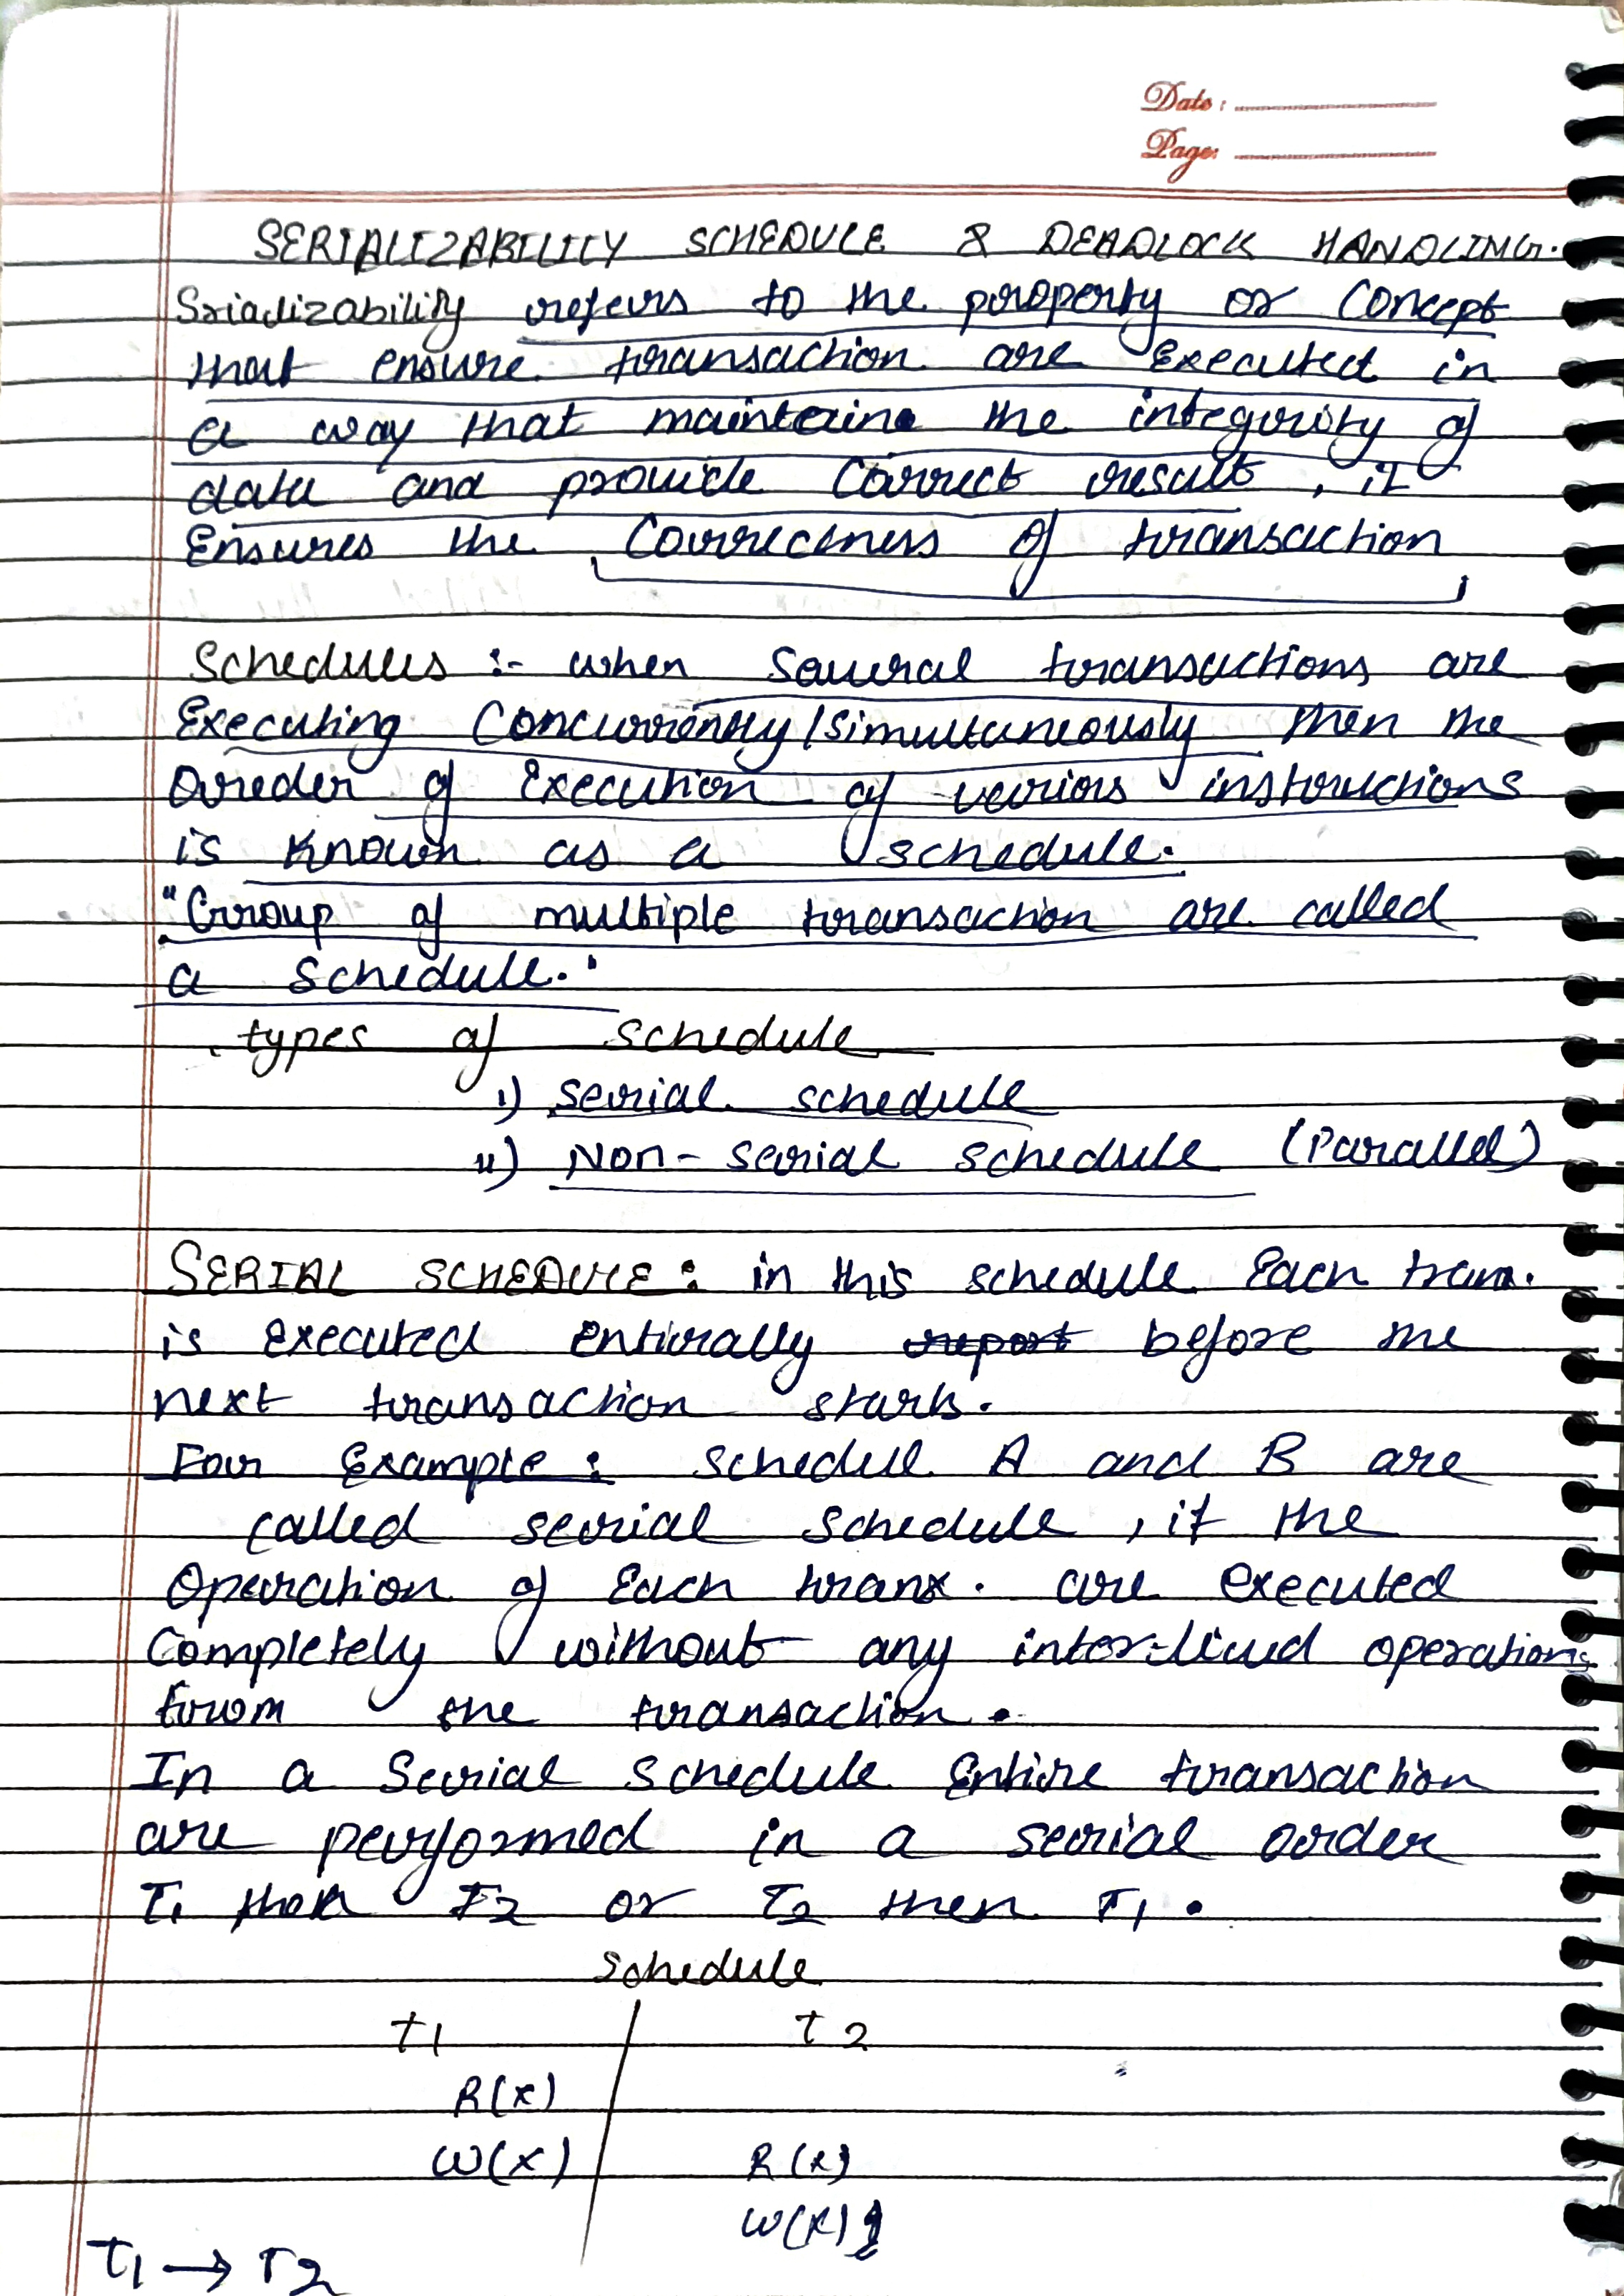 Date:
Page:
SERIALIZABILITY SCHEDULE & DEADLOCK HANDLING.
Srializability refers to the property or concept
that ensure transaction are Executed in
a way that maintain the integrity of
data and provide Correct result, it
Ensures the Correctness of transaction
Schedules :- when several transactions are
Executing Concurrently/simultaneously then the
Oreder of Execution of various instructions
is known as a schedule.
"Group of multiple transaction are called
a schedule."
types of schedule
i) serial schedule
ii) Non-serial schedule (Parallel)
SERIAL SCHEDULE: in this schedule Each tran.
is executed entirally before the
next transaction starts.
For Example: schedule A and B are
called serial schedule, if the
Operation of Each tranx. are executed
Completely without any operations
from the transaction.
In a Serial schedule Entire transaction
are performed in a serial order
T1 then T2 or T2 then T1.
schedule
T1 T2
R(x)
W(x) R(x)
W(x)
T1 → T2